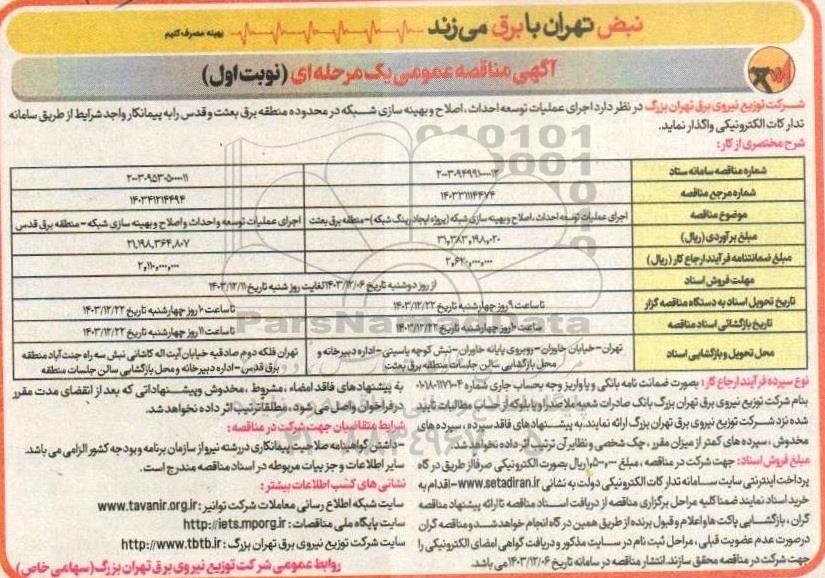 نبض تهران با برق می‌زند
بهینه مصرف کنیم
آگهی مناقصه عمومی یک مرحله‌ای (نوبت اول)
شرکت توزیع نیروی برق تهران بزرگ در نظر دارد اجرای عملیات توسعه احداث، اصلاح و بهینه سازی شبکه در محدوده منطقه برق بعثت و قدس را به پیمانکار واجد شرایط از طریق سامانه
تدارکات الکترونیکی واگذار نماید.
شرح مختصری از کار:
شماره مناقصه سامانه ستاد ۲۰۰۳۰۹۴۹۹۱۰۰۰۰۱۲ ۲۰۰۳۰۹۵۳۰۵۰۰۰۰۱۱
شماره مرجع مناقصه ۱۴۰۳۳۱۱۱۴۴۷۴ ۱۴۰۳۴۱۲۱۴۴۹۴
موضوع مناقصه اجرای عملیات توسعه احداث، اصلاح و بهینه سازی شبکه (پروژه ایجاد رینگ شبکه) - منطقه برق بعثت اجرای عملیات توسعه و احداث و اصلاح و بهینه سازی شبکه - منطقه برق قدس
مبلغ برآوردی (ریال) ۳۱,۳۸۳,۱۹۸,۰۲۰ ۲۱,۱۹۸,۳۶۴,۸۰۷
مبلغ ضمانتنامه فرآیند ارجاع کار (ریال) ۲,۶۲۰,۰۰۰,۰۰۰ ۲,۱۱۰,۰۰۰,۰۰۰
مهلت فروش اسناد از روز دوشنبه تاریخ ۱۴۰۳/۱۲/۰۶ لغایت روز شنبه تاریخ ۱۴۰۳/۱۲/۱۱
تاریخ تحویل اسناد به دستگاه مناقصه گزار تا ساعت ۹ روز چهارشنبه تاریخ ۱۴۰۳/۱۲/۲۲ تا ساعت ۱۰ روز چهارشنبه تاریخ ۱۴۰۳/۱۲/۲۲
تاریخ بازگشائی اسناد مناقصه ساعت ۱۰ روز چهارشنبه تاریخ ۱۴۰۳/۱۲/۲۲ تا ساعت ۱۱ روز چهارشنبه تاریخ ۱۴۰۳/۱۲/۲۲
محل تحویل و بازگشایی اسناد تهران - خیابان خاوران - روبروی پایانه خاوران - نبش کوچه یاسینی - اداره دبیرخانه و محل بازگشایی سالن جلسات منطقه برق بعثت تهران فلکه دوم صادقیه خیابان آیت اله کاشانی نبش سه راه جنت آباد منطقه برق قدس - اداره دبیرخانه و محل بازگشایی سالن جلسات منطقه
نوع سپرده فرآیند ارجاع کار: بصورت ضمانت نامه بانکی و یا واریز وجه بحساب جاری شماره ۰۱۰۱۸۰۱۱۷۱۰۰۴
بنام شرکت توزیع نیروی برق تهران بزرگ بانک صادرات شعبه ملاصدرا و یا بلوکه از حساب مطالبات تایید
شده نزد شرکت توزیع نیروی برق تهران بزرگ ارائه نمایند. به پیشنهادهای فاقد سپرده، سپرده های
مخدوش، سپرده های کمتر از میزان مقرر، چک شخصی و نظایر آن ترتیب اثر داده نخواهد شد.
مبلغ فروش اسناد: جهت شرکت در مناقصه، مبلغ ریال بصورت الکترونیکی صرفا از طریق درگاه
پرداخت اینترنتی سایت سامانه تدارکات الکترونیکی دولت به نشانی www.setadiran.ir اقدام به
خرید اسناد نمایند ضمنا کلیه مراحل برگزاری مناقصه از دریافت اسناد مناقصه تا ارائه پیشنهاد مناقصه
گران، بازگشایی پاکت ها و اعلام و قبول برنده از طریق همین درگاه انجام خواهد شد و مناقصه گران
در صورت عدم عضویت قبلی، مراحل ثبت نام در سایت مذکور و دریافت گواهی امضای الکترونیکی را
جهت شرکت در مناقصه محقق سازند. انتشار مناقصه در سامانه تاریخ ۱۴۰۳/۱۲/۰۶ می باشد.
به پیشنهادهای فاقد امضاء، مشروط، مخدوش و پیشنهاداتی که بعد از انقضای مدت مقرر
در فراخوان واصل می شود، مطلقا ترتیب اثر داده نخواهد شد.
شرایط متقاضیان جهت شرکت در مناقصه:
- داشتن گواهینامه صلاحیت پیمانکاری در رشته نیرو از سازمان برنامه و بودجه کشور الزامی می باشد.
سایر اطلاعات و جزییات مربوطه در اسناد مناقصه مندرج است.
نشانی های کسب اطلاعات بیشتر:
سایت شبکه اطلاع رسانی معاملات شرکت توانیر: www.tavanir.org.ir
سایت پایگاه ملی مناقصات: http://iets.mporg.ir
سایت شرکت توزیع نیروی برق تهران بزرگ: http://www.tbtb.ir
روابط عمومی شرکت توزیع نیروی برق تهران بزرگ (سهامی خاص)
ParsNamadData